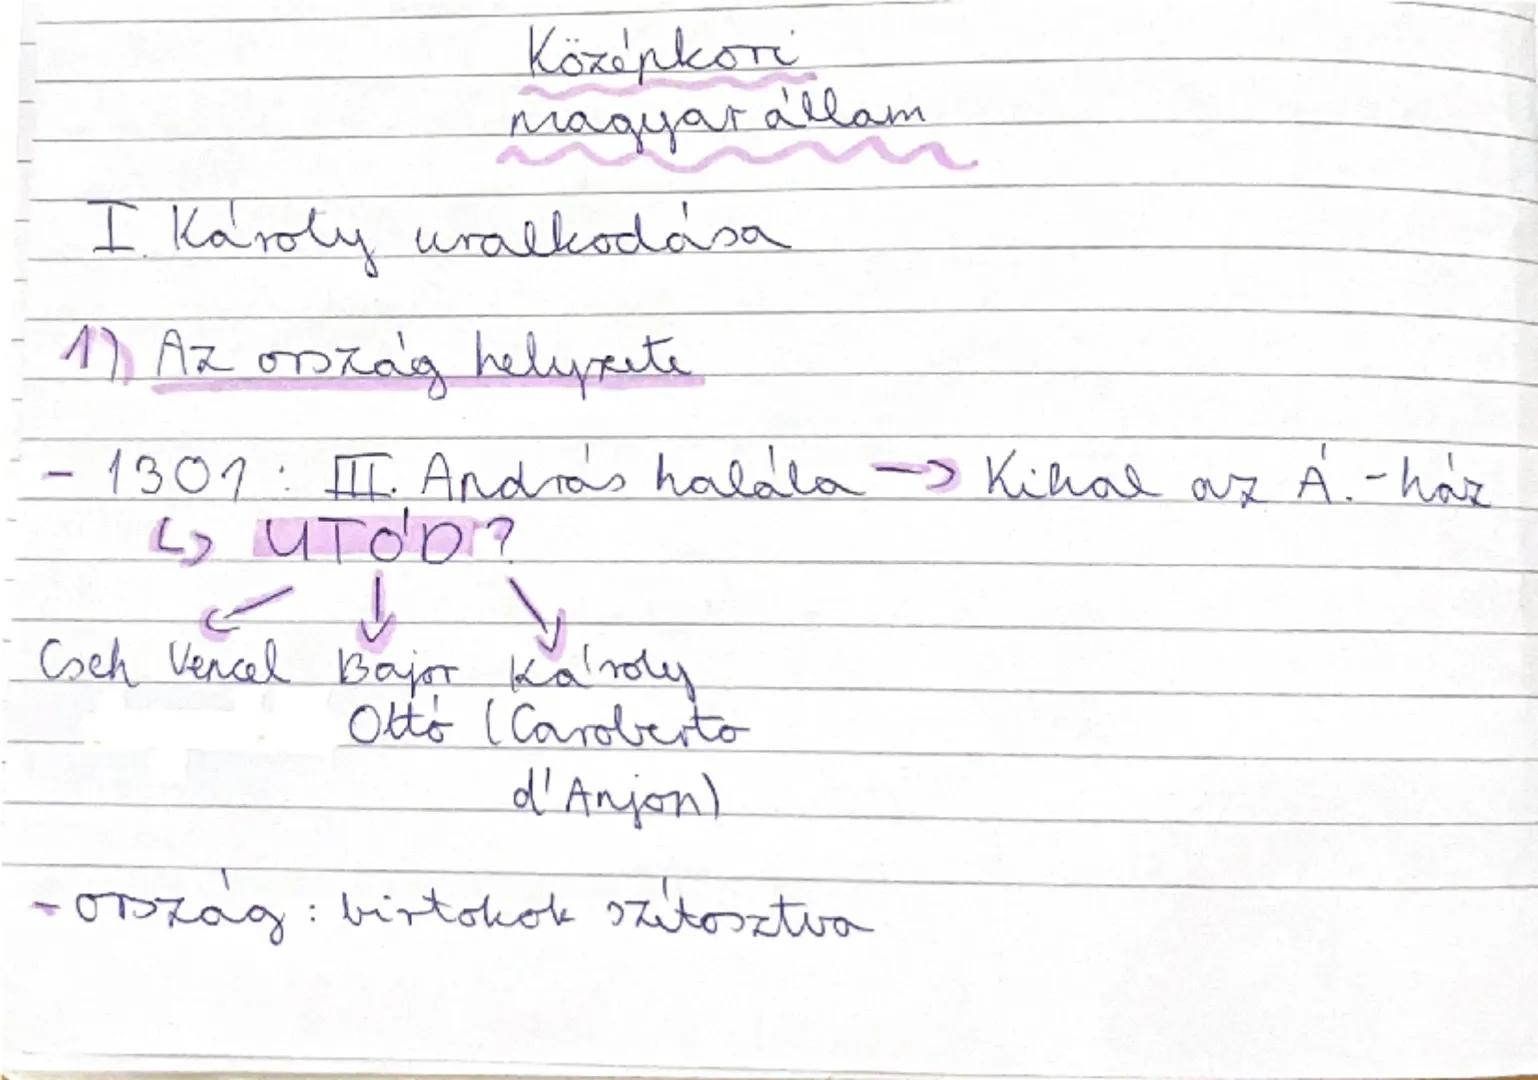 Középkori
magyar állam
I. Károly uralkodása
1) Az ország helyzete
- 1301: III. András halála -> Kihal az Á.-ház
↳ UTÓD?
Cseh Vencel Bajor Károly
Ottó (Caroberto
d'Anjou)
- ország: birtokok szétosztva